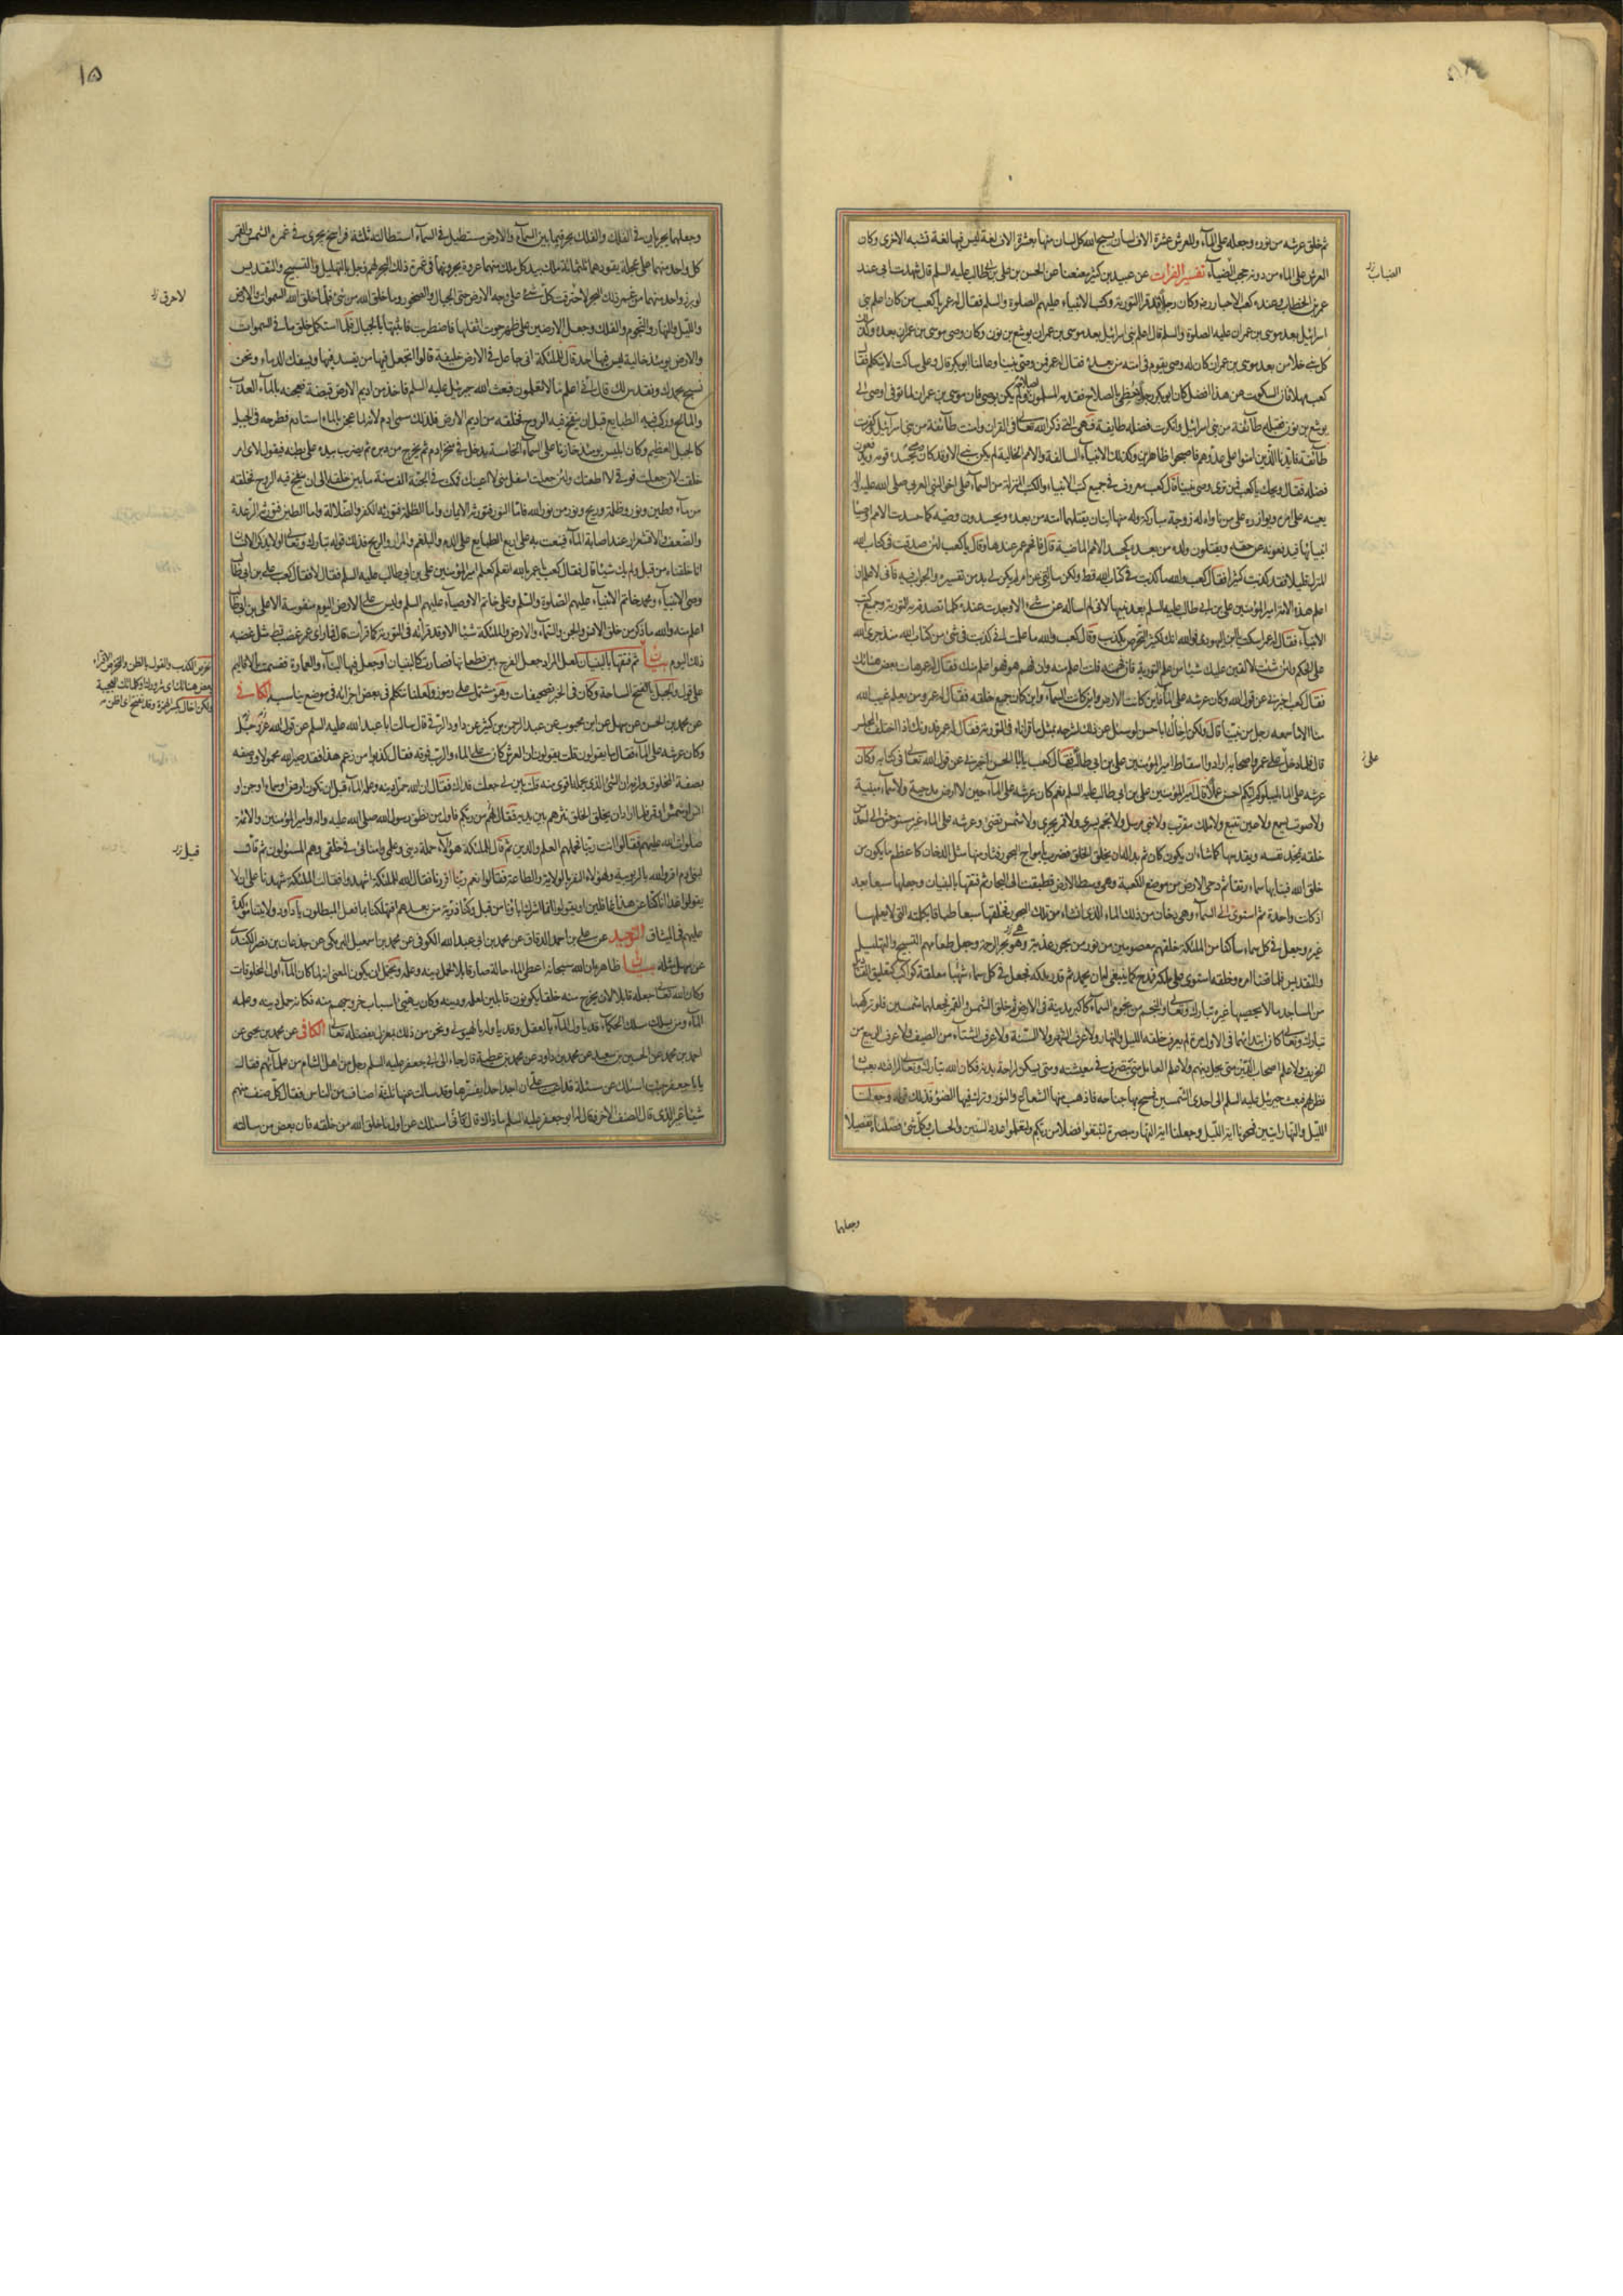 ثم خلق عرشه من نوره وجعله على الماء وللعرش عشرة الاف لسان يسبح الله كل لسان منها بعشرة الاف لغة ليس فيها لغة تشبه الاخرى وكان
العرش على الماء من دونه حجب الضباب تفسير الفرات عن عبيد بن كثير معنعنا عن الحسن بن علي بن ابي طالب عليه السلم قال شهدت ابي عند
عمر بن الخطاب وعنده كعب الاحبار وكان رجلا قد قرا التورية وكتب الانبياء عليهم الصلوة والسلم فقال له عمر يا كعب من كان اعلم بني
اسرائيل بعد موسى بن عمران عليه الصلوة والسلم قال كان اعلم بني اسرائيل بعد موسى بن عمران يوشع بن نون وكان وصي موسى بن عمران بعده وكذلك
كل نبي خلا من بعد موسى بن عمران كان له وصي يقوم في امته من بعده فقال له عمر فمن وصي نبينا وعالمنا ابو بكر قال وعلي ساكت لا يتكلم فقال
كعب مهلا فان السكوت عن هذا افضل كان ابو بكر رجلا حظي بالصلاح فقدمه المسلمون لصلاحه ولم يكن بوصي فان موسى بن عمران لما توفي اوصى الى
يوشع بن نون فقبله طائفة من بني اسرائيل وانكرت فضله طائفة فهي التي ذكر الله تعالى في القران وامنت طائفة من بني اسرائيل وكفرت
طائفة فايدنا الذين امنوا على عدوهم فاصبحوا ظاهرين وكذلك الانبياء السالفة والامم الخالية لم يكن نبي الا وقد كان له وصي يحسده قومه ويدفعون
فضله فقال ويحك يا كعب فمن ترى وصي نبينا قال كعب معروف في جميع كتب الانبياء والكتب المنزلة من السماء علي اخو النبي العربي صلى الله عليه واله
يعينه على امره ويوازره على من ناواه له زوجة مباركة وله منها ابنان يقتلهما امته من بعده ويحسدون وصيه كما حسدت الامم اوصياء
انبيائها فيدفعونه عن حقه ويقتلون ولده من بعده كحسد الامم الماضية قال فافحم عمر عندها وقال يا كعب لئن صدقت في كتاب الله
المنزل قليلا فقد كذبت كثيرا فقال كعب والله ما كذبت في كتاب الله قط ولكن سالتني عن امر لم يكن لي بد من تفسيره والجواب فيه فاني لاعلم ان
اعلم هذه الامة امير المؤمنين علي بن ابي طالب عليه السلم بعد نبيها لاني لم اساله عن شيء الا وجدت عنده علما تصدقه به التورية وجميع كتب
الانبياء فقال له عمر اسكت يا ابن اليهودي فوالله انك لكثير التخرص بكذب وقال كعب والله ما علمت اني كذبت في شيء من كتاب الله منذ جرى لله
علي الحكم ولئن شئت لالقين عليك شيئا من علم التورية فان فهمته فانت اعلم منه وان فهم هو فهو اعلم منك فقال له عمر هات بعض هناتك
فقال كعب اخبرني عن قول الله وكان عرشه على الماء فاين كانت الارض واين كانت السماء واين كان جميع خلقه فقال له عمر ومن يعلم غيب الله
منا الا ما سمعه رجل من نبينا قال ولكن اخال ابا حسن لو سئل عن ذلك لشرحه بمثل ما قراناه في التورية فقال له عمر فدونك اذا اختلف المجلس
قال فلما دخل علي على عمر واصحابه ارادوا اسقاط امير المؤمنين علي بن ابي طالب فقال كعب يا ابا الحسن اخبرني عن قول الله تعالى في كتابه وكان
عرشه على الماء ليبلوكم ايكم احسن عملا قال امير المؤمنين علي بن ابي طالب عليه السلم نعم كان عرشه على الماء حين لا ارض مدحية ولا سماء مبنية
ولا صوت يسمع ولا عين تنبع ولا ملك مقرب ولا نبي مرسل ولا نجم يسري ولا قمر يجري ولا شمس تضيء وعرشه على الماء غير مستوحش الى احد من
خلقه يمجد نفسه ويقدسها كما شاء ان يكون كان ثم بدا له ان يخلق الخلق فضرب بامواج البحور فثار منها مثل الدخان كاعظم ما يكون من
خلق الله فبنا بها سماء رتقا ثم دحى الارض من موضع الكعبة وهي وسط الارض فطبقت الى البحار ثم فتقها بالبنيان وجعلها سبعا بعد
اذ كانت واحدة ثم استوى الى السماء وهي دخان من ذلك الماء الذي انشاه من تلك البحور فجعلها سبعا طباقا بكلمته التي لا يعلمها
غيره وجعل في كل سماء ساكنا من الملئكة خلقهم معصومين من نور من بحور عذبة وهو بحر الرحمة وجعل طعامهم التسبيح والتهليل
والتقديس فلما قضا امره وخلقه استوى على ملكه فمدح كما ينبغي له ان يحمد ثم قدر ملكه فجعل في كل سماء شهبا معلقة كواكب كتعليق القناديل
من المساجد ما لا يحصيها غيره تبارك وتعالى والنجم من نجوم السماء كاكبر مدينة في الارض ثم خلق الشمس والقمر فجعلهما شمسين فلو تركهما
تبارك وتعالى كما كان ابتداهما في اول مرة لم يعرف خلقة الليل والنهار ولا عرف الشهر ولا السنة ولا عرف الشتاء من الصيف ولا عرف الربيع من
الخريف ولا علم اصحاب الدين متى يحل دينهم ولا علم العامل متى يتصرف في معيشته ومتى يسكن لراحة بدنه فكان الله تبارك وتعالى لرافته بعباده
نظر لهم فبعث جبرئيل عليه السلم الى احدى الشمسين فمسح بها جناحه فاذهب منها الشعاع والنور وترك فيها الضوء فذلك قوله وجعلنا
الليل والنهار ايتين فمحونا اية الليل وجعلنا اية النهار مبصرة لتبتغوا فضلا من ربكم ولتعلموا عدد السنين والحساب وكل شيء فصلناه تفصيلا
الضباب
علي
وجعلهما
١٥
وجعلهما يجريان في الفلك والفلك بحر فيما بين السماء والارض مستطيل في السماء استطالته ثلثة فراسخ يجري في غمرة الشمس والقمر
كل واحد منهما على عجلة يقودهما ثلثمائة ملك بيد كل ملك منهما عروة يجرونها في غمرة ذلك البحر لهم زجل بالتهليل والتسبيح والتقديس
لو برز واحد منهما من غمر ذلك البحر لاحترقت كل شيء على وجه الارض حتى الجبال والصخور وما خلق الله من شيء فلما خلق الله السموات والارض
والليل والنهار والنجوم والفلك وجعل الارضين على ظهر حوت اثقلها فاضطربت فاثبتها بالجبال فلما استكمل خلق ما في السموات
والارض يومئذ خالية ليس فيها احد قال للملئكة اني جاعل في الارض خليفة قالوا اتجعل فيها من يفسد فيها ويسفك الدماء ونحن
نسبح بحمدك ونقدس لك قال اني اعلم ما لا تعلمون فبعث الله جبرئيل عليه السلم فاخذ من اديم الارض قبضة فعجنه بالماء العذب
والمالح وركب فيه الطبايع قبل ان ينفخ فيه الروح فخلقه من اديم الارض فلذلك سمي ادم لانه لما عجن بالماء استادم فطرحه في الجبل
كالجبل العظيم وكان ابليس يومئذ خازنا على السماء الخامسة يدخل في منخر ادم ثم يخرج من دبره ثم يضرب بيده على بطنه فيقول لاي امر
خلقت لئن جعلت فوقي لا اطعتك ولئن جعلت اسفل مني لا اعينك فمكث في الجنة الف سنة ما بين خلقه الى ان ينفخ فيه الروح فخلقه
من ماء وطين ونور وظلمة وريح ونور من نور الله فاما النور فيورثه الايمان واما الظلمة فيورثه الكفر والضلالة واما الطين فيورثه الرعدة
والضعف والاقشعرار عند اصابة الماء فينعت به على اربع الطبايع على الدم والبلغم والمرار والريح فذلك قوله تبارك وتعالى اولا يذكر الانسان
انا خلقناه من قبل ولم يك شيئا قال فقال كعب يا عمر بالله اتعلم كعلم امير المؤمنين علي بن ابي طالب عليه السلم فقال لا فقال كعب علي بن ابي طالب
وصي الانبياء ومحمد خاتم الانبياء عليهم الصلوة والسلم وعلي خاتم الاوصياء عليهم السلم وليس على الارض اليوم منفوسة الا علي بن ابي طالب
اعلم منه والله ما ذكر من خلق الانس والجن والسماء والارض والملئكة شيئا الا وقد قراته في التورية كما قرات قال فما راى عمر غضب قط مثل غضبه
ذلك اليوم بيان ثم فتقها بالبنيان لعل المراد جعل الفرج بين قطعاتها فصارت كالبنيان او جعل فيها البناء والعمارة فقسمت الاقاليم
على قول ويحتمل بالفتح الساحة وكان في الخبر تصحيفات وهو مشتمل على رموز ولعلنا نتكلم في بعض اجزائه في موضع يناسبه الكافي
عن محمد بن الحسن عن سهل عن ابن محبوب عن عبد الرحمن بن كثير عن داود الرقي قال سالت ابا عبد الله عليه السلم عن قول الله عز وجل
وكان عرشه على الماء فقال ما يقولون قلت يقولون ان العرش كان على الماء والرب فوقه فقال كذبوا من زعم هذا فقد صير الله محمولا ووصفه
بصفة المخلوق ولزمه ان الشيء الذي يحمله اقوى منه قلت بين لي جعلت فداك فقال ان الله حمل دينه وعلمه الماء قبل ان تكون ارض او سماء او جن او
انس او شمس او قمر فلما اراد ان يخلق الخلق نثرهم بين يديه فقال لهم من ربكم فاول من نطق رسول الله صلى الله عليه واله وامير المؤمنين والائمة
صلوات الله عليهم فقالوا انت ربنا فحملهم العلم والدين ثم قال للملئكة هؤلاء حملة ديني وعلمي وامنائي في خلقي وهم المسئولون ثم قال
لبني ادم اقروا لله بالربوبية ولهؤلاء النفر بالولاية والطاعة فقالوا نعم ربنا اقررنا فقال الله للملئكة اشهدوا فقالت الملئكة شهدنا على ان لا
يقولوا غدا انا كنا عن هذا غافلين او يقولوا انما اشرك اباؤنا من قبل وكنا ذرية من بعدهم افتهلكنا بما فعل المبطلون يا داود ولايتنا مؤكدة
عليهم في الميثاق التوحيد عن علي بن احمد الدقاق عن محمد بن ابي عبد الله الكوفي عن محمد بن اسمعيل البرمكي عن جذعان بن نصر الكندي
عن سهل مثله بيان ظاهره ان الله سبحانه اعطى الماء حالة صار قابلا لحمل دينه وعلمه ويحتمل ان يكون المعنى انه لما كان الماء اول المخلوقات
وكان الله تعالى جعله قابلا لان يخرج منه خلقا يكونون قابلين لعلمه ودينه وكان يهيئ اسباب خروجهم منه فكانه حمل دينه وعلمه
الماء ومن يسلك مسلك الحكماء قد ياول الماء بالعقل وقد ياوله بالهيولى ونحن من ذلك بمعزل بفضله تعالى الكافي عن محمد بن يحيى عن
احمد بن محمد عن الحسين بن سعيد عن محمد بن داود عن محمد بن عطية قال جاء الى ابي جعفر عليه السلم رجل من اهل الشام من علمائهم فقال
يا ابا جعفر جئت اسئلك عن مسئلة قد اعيت علي ان اجد احدا يفسرها وقد سالت عنها ثلثة اصناف من الناس فقال كل صنف منهم
شيئا غير الذي قال الصنف الاخر فقال له ابو جعفر عليه السلم ما ذاك قال فاني اسئلك عن اول ما خلق الله من خلقه فان بعض من سالته
لاحرق
قيل